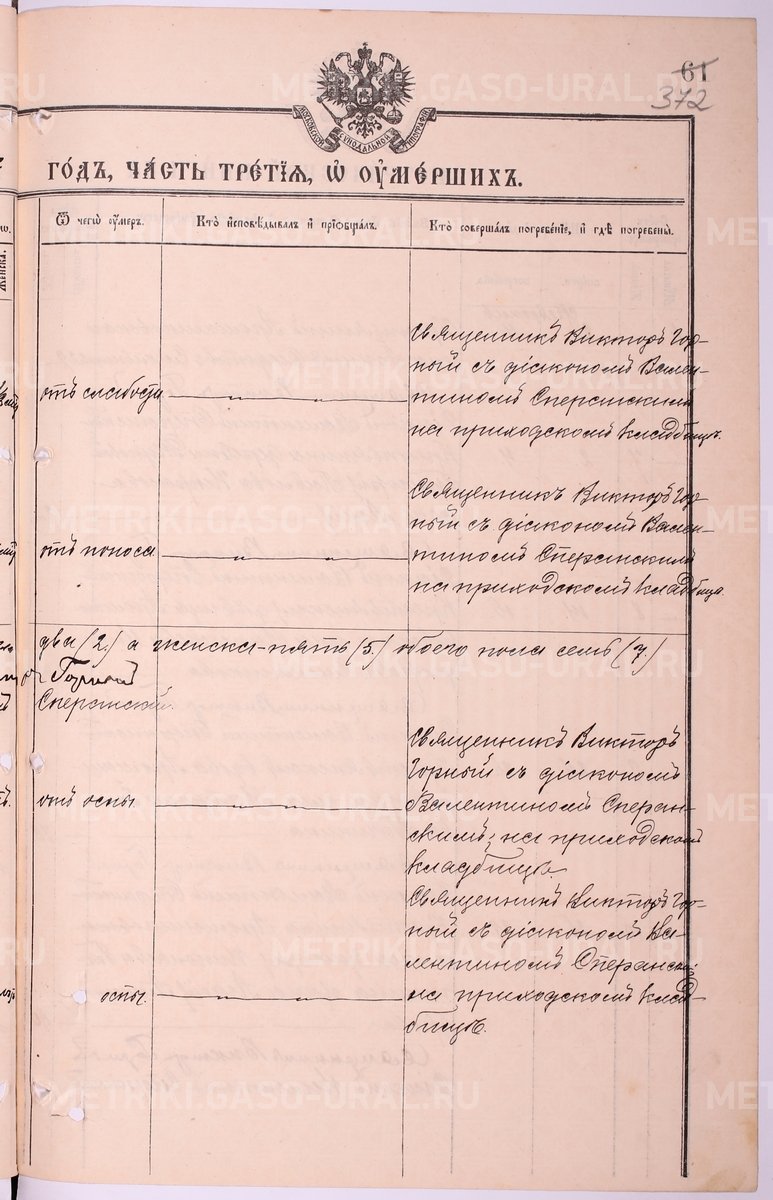 61
372
МОСКОВСКОЙ СУНОДАЛЬНОЙ ТИПОГРАФІИ
ГО́ДЪ, ЧА́СТЬ ТРЕ́ТІѦ, Ѡ҆ ОУ҆МЕ́РШИХЪ.
Ѿ чегѡ̀ оу҆́меръ.
Кто̀ и҆сповѣ́дывалъ и҆ прїѡбща́лъ.
Кто̀ соверша́лъ погребе́нїе, и҆ гдѣ̀ погребены̀.
Женска.
отъ слабости
Священникъ Викторъ Гор-
ный съ діакономъ Вален-
тиномъ Сперанскимъ
на приходскомъ кладбищѣ.
отъ поноса
Священникъ Викторъ Гор-
ный съ діакономъ Вален-
тиномъ Сперанскимъ
на приходскомъ кладбищѣ.
два (2) а женска-пять (5) обоего пола семь (7)
Горный
Сперанский.
отъ оспы.
Священникъ Викторъ
Горный съ діакономъ
Валентиномъ Сперан-
скимъ, на приходскомъ
кладбищѣ
оспы.
Священникъ Викторъ Гор-
ный съ діакономъ Ва-
лентиномъ Сперанск.
на приходскомъ клад-
бищѣ.
METRIKI.GASO-URAL.RU